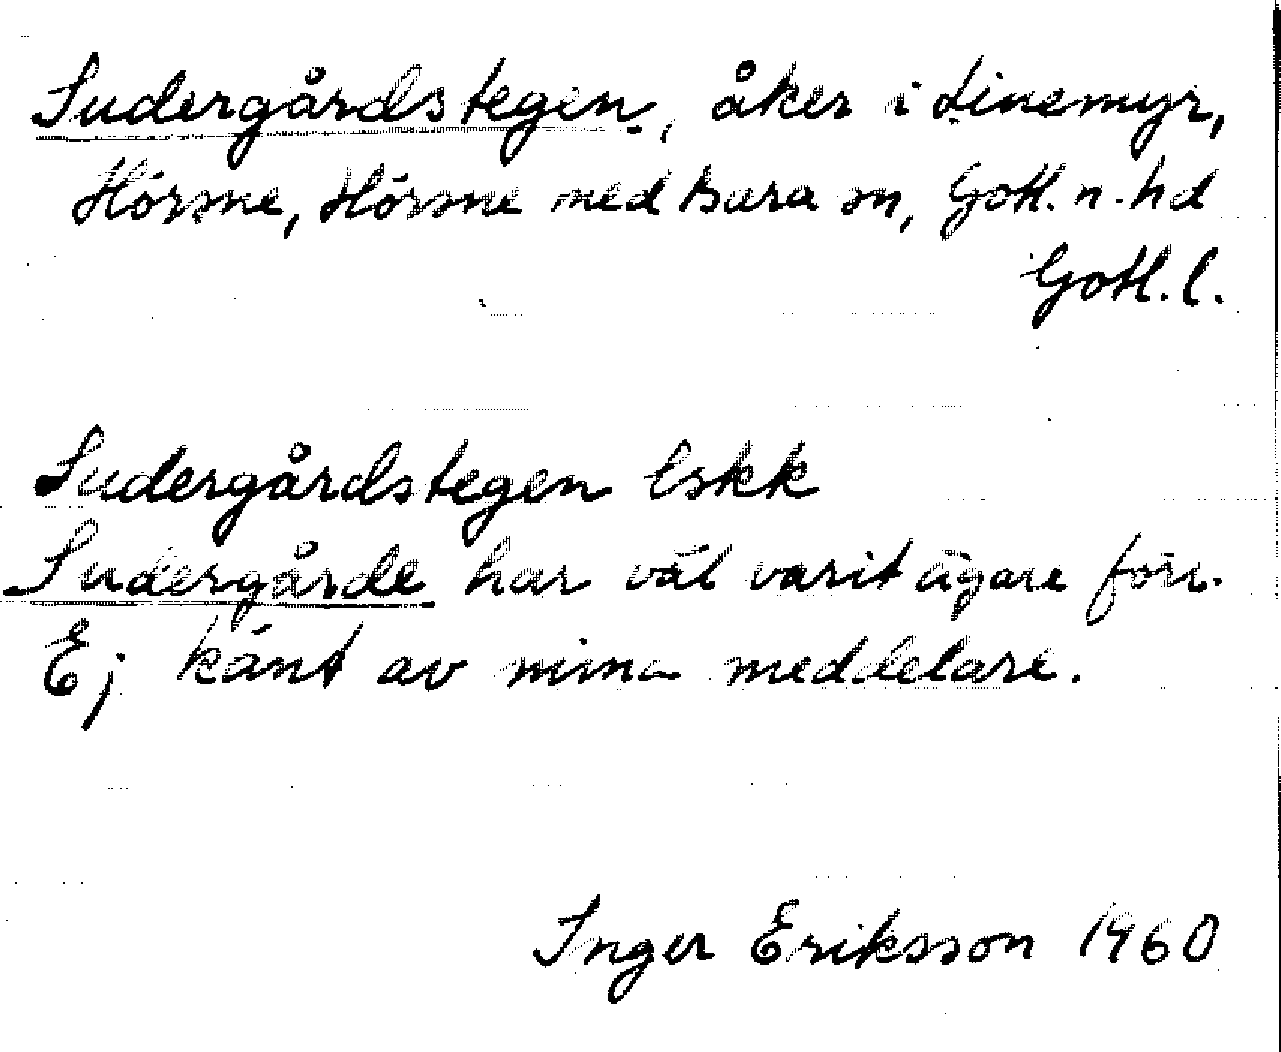 Sudergårdstegen, åker i Linemyr,
Hörsne, Hörsne med Bara sn, Gotl. n. hd
Gotl. l.
Sudergårdstegen Eskk
Sudergårde har väl varit ägare förr.
Ej känt av mina meddelare.
Inger Eriksson 1960